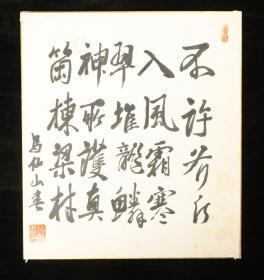 不許斧斤
入風霜寒
翠堆龍鱗
神所護真
箇棟梁材
仙山書